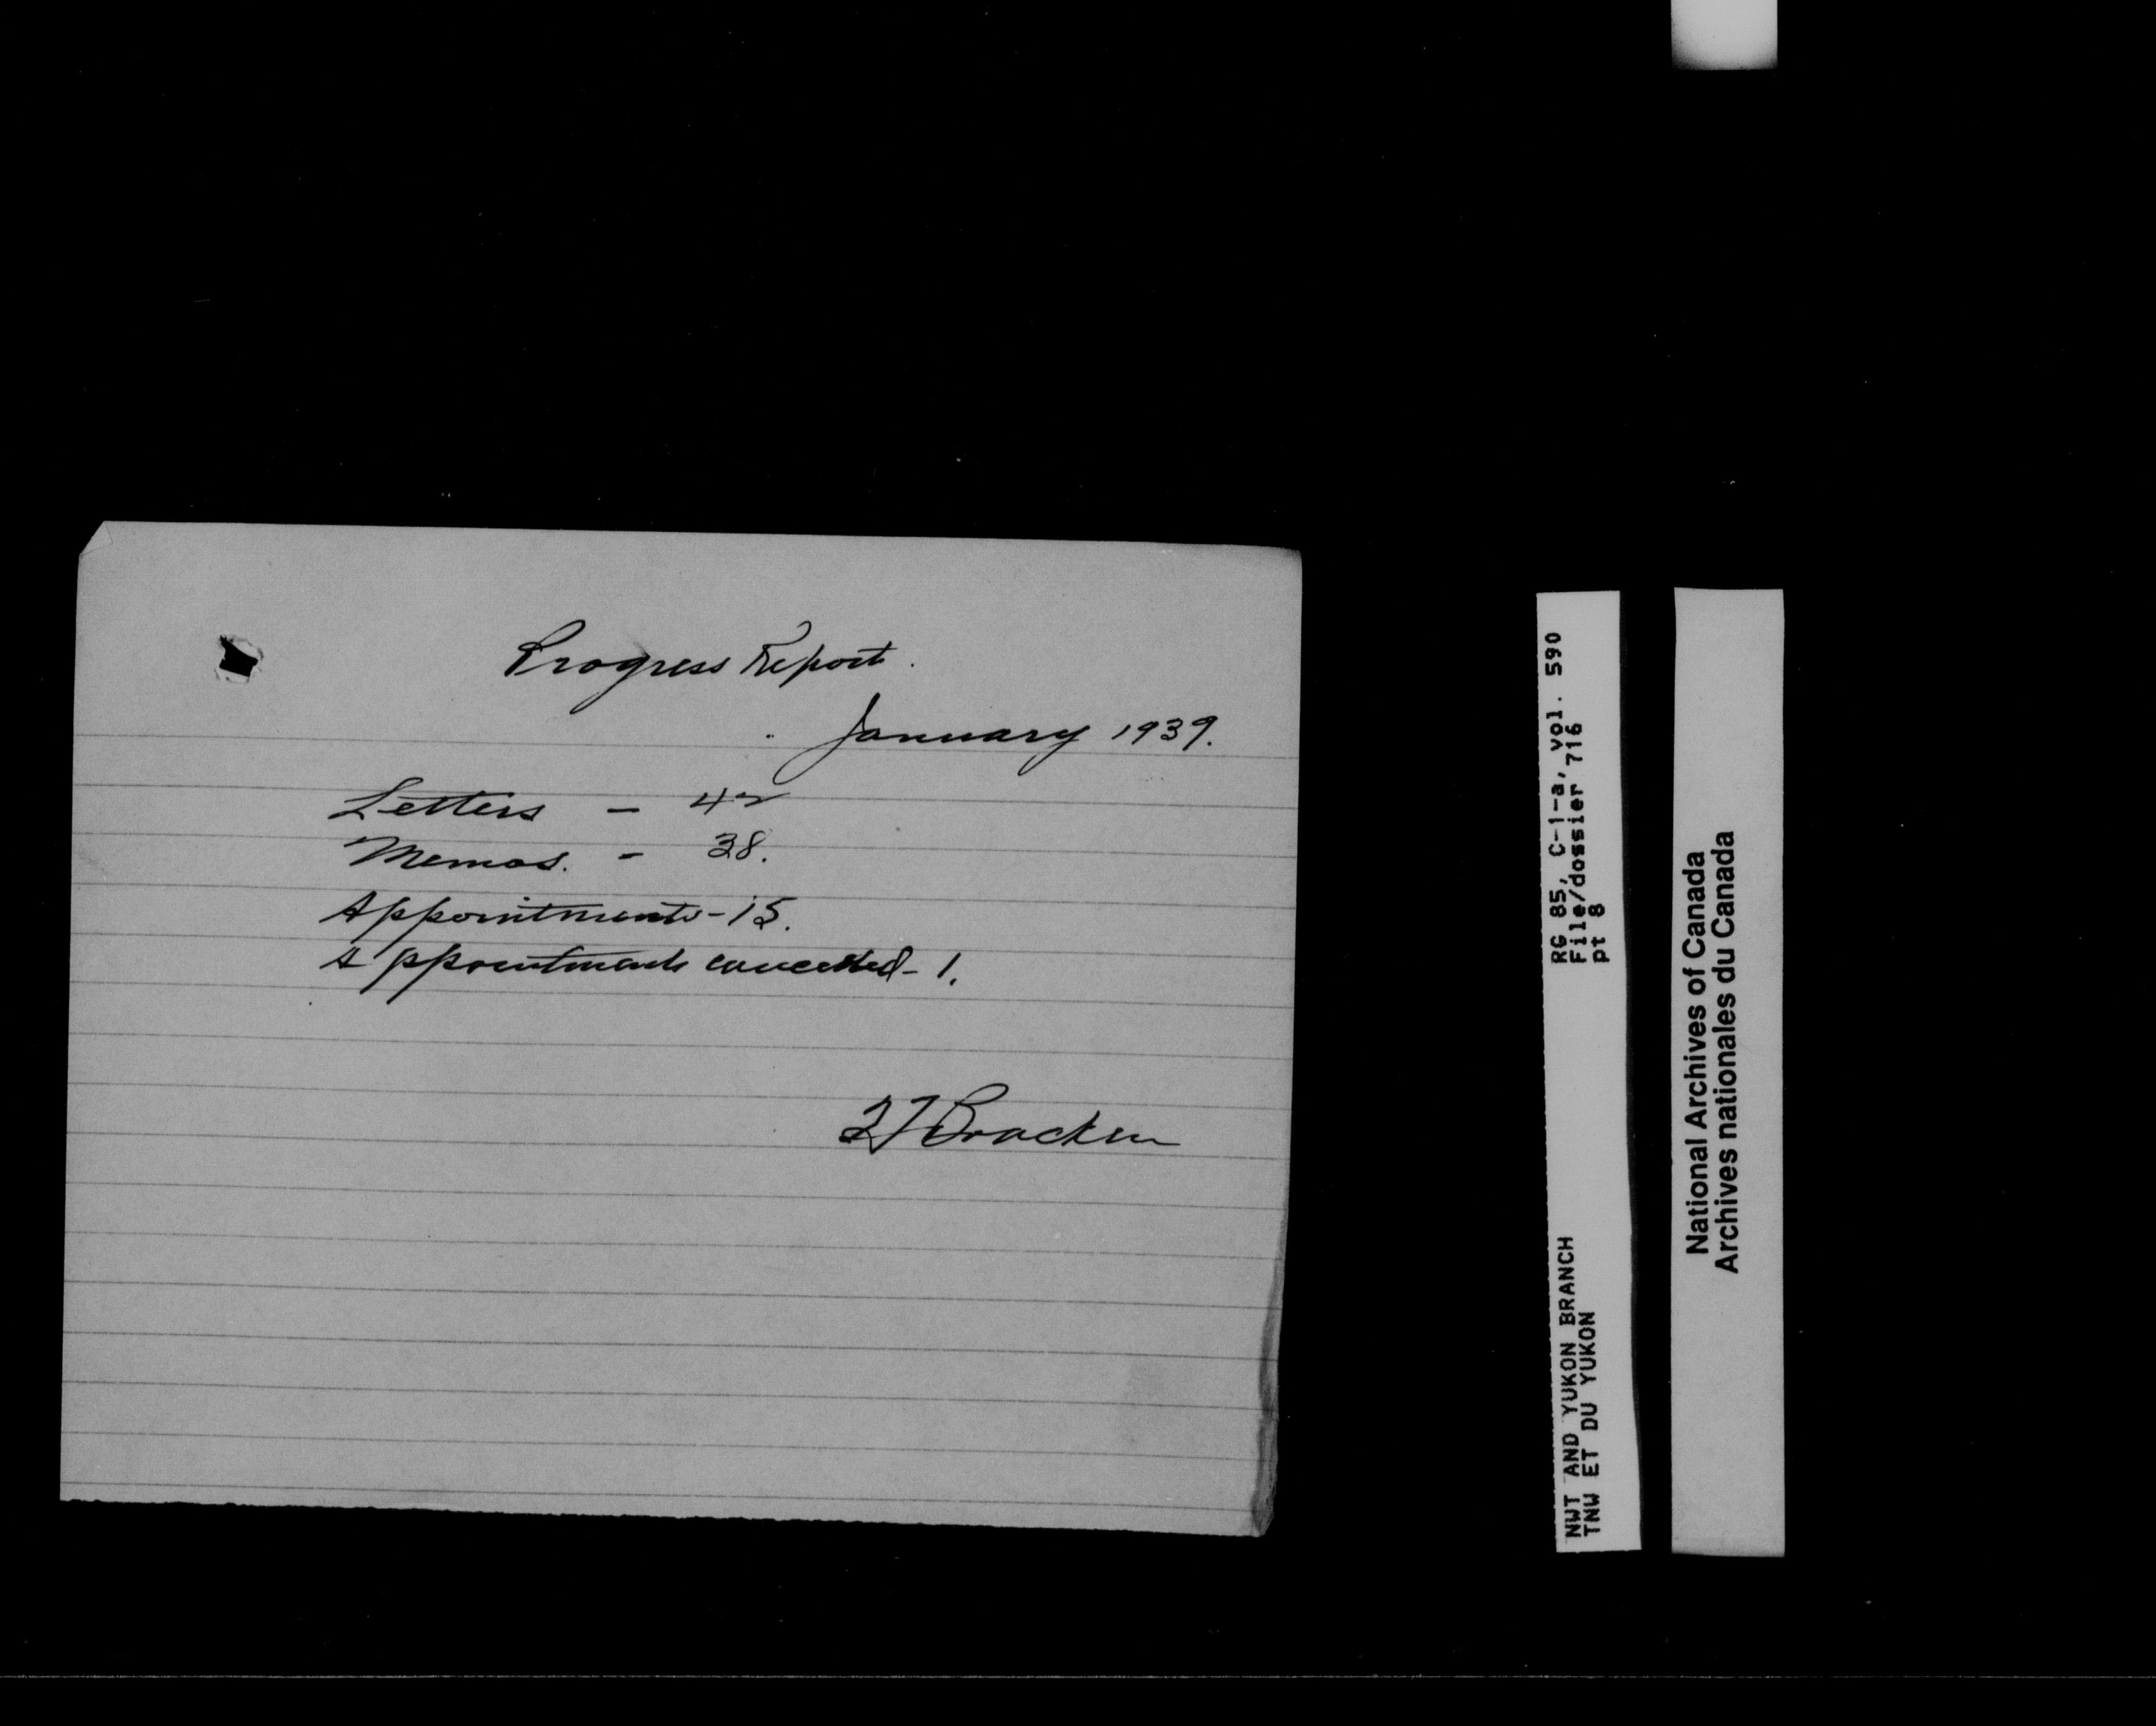 Progress Report.
January 1939.
Letters - 42
Memos. - 38.
Appointments - 15.
Appointments cancelled - 1.
Bracken
RG 85, C-1-a, vol. 590
File/dossier 716
pt 8
NWT AND YUKON BRANCH
TNW ET DU YUKON
National Archives of Canada
Archives nationales du Canada